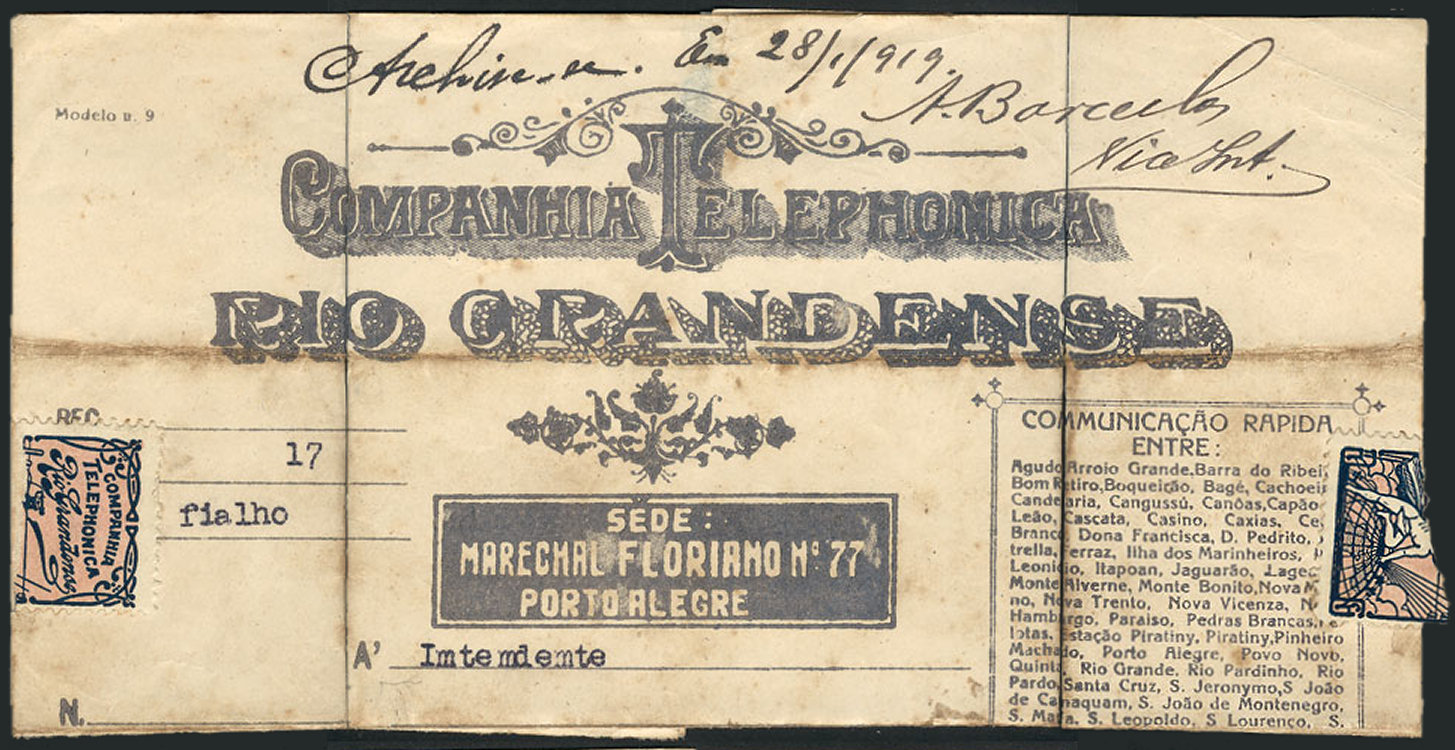 Archive-se. Em 28/1/919.
A. Barcellos
Vice Int.
Modelo n. 9
COMPANHIA TELEPHONICA
RIO GRANDENSE
REC
17
fialho
COMPANHIA
TELEPHONICA
Rio Grandense
SÉDE:
MARECHAL FLORIANO Nº 77
PORTO ALEGRE
A' Imtemdemte
N.
COMMUNICAÇÃO RAPIDA
ENTRE:
Agudo, Arroio Grande, Barra do Ribei
Bom Retiro, Boqueirão, Bagé, Cachoeir
Candelaria, Cangussú, Canôas, Capão
Leão, Cascata, Casino, Caxias, Ce
Branco, Dona Francisca, D. Pedrito,
trella, Ferraz, Ilha dos Marinheiros,
Leonidio, Itapoan, Jaguarão, Lagea
Monte Alverne, Monte Bonito, Nova M
no, Nova Trento, Nova Vicenza, N
Hamburgo, Paraiso, Pedras Brancas,
lotas, Estação Piratiny, Piratiny, Pinheiro
Machado, Porto Alegre, Povo Novo,
Quinta, Rio Grande, Rio Pardinho, Rio
Pardo, Santa Cruz, S. Jeronymo, S João
de Camaquam, S. João de Montenegro,
S. Maria, S. Leopoldo, S Lourenço, S.